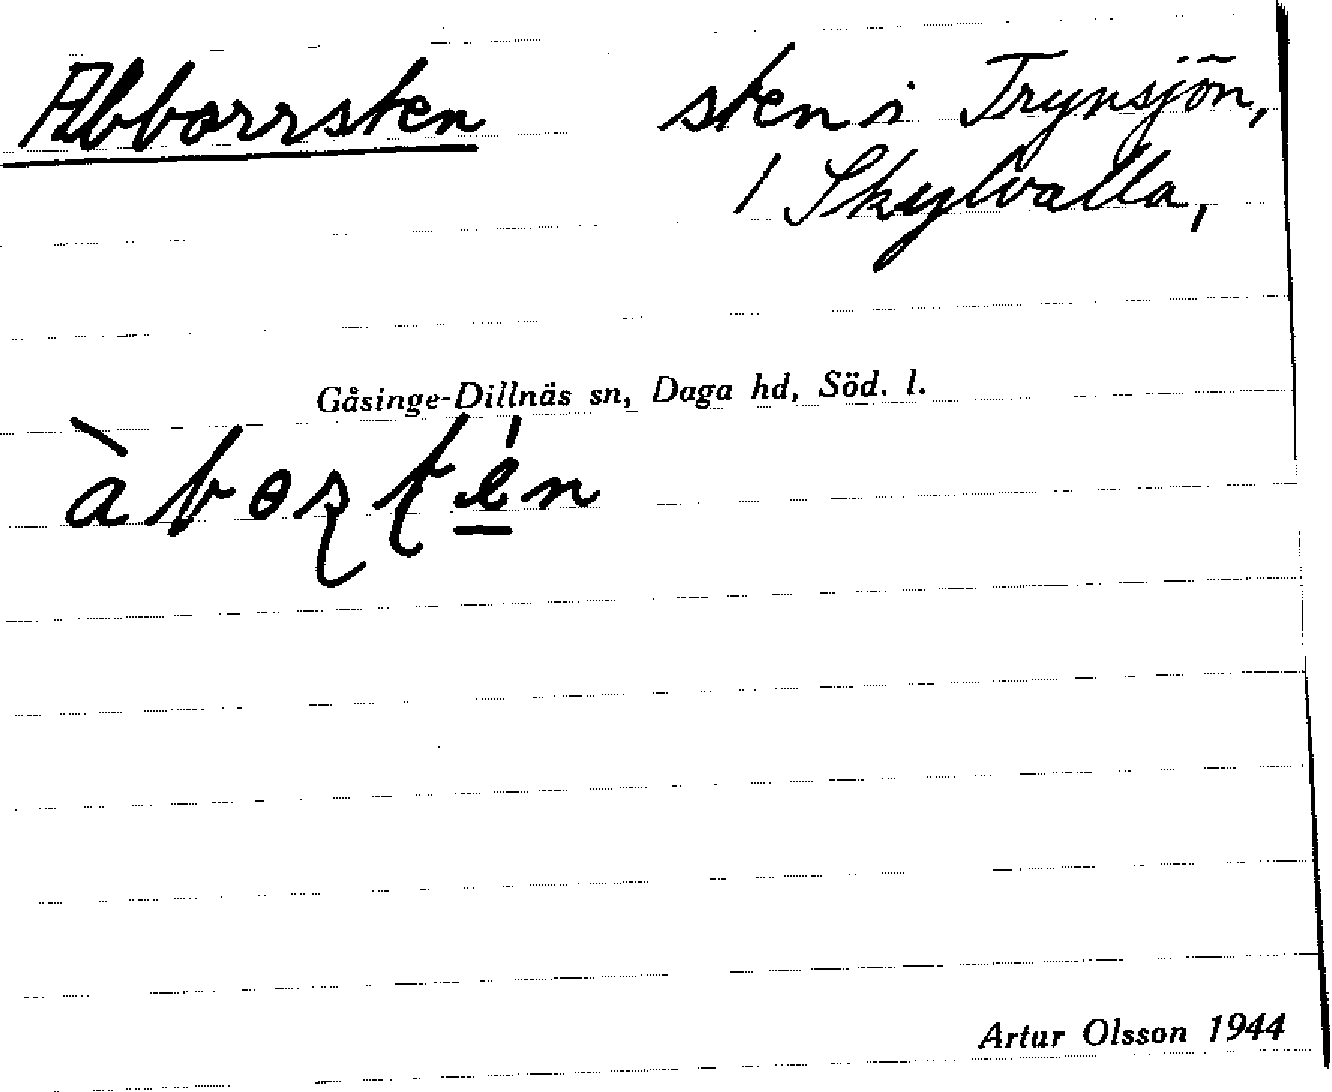 Abborrsten sten i Trynsjön,
/ Skylvalla,
Gåsinge-Dillnäs sn, Daga hd, Söd. l.
Artur Olsson 1944